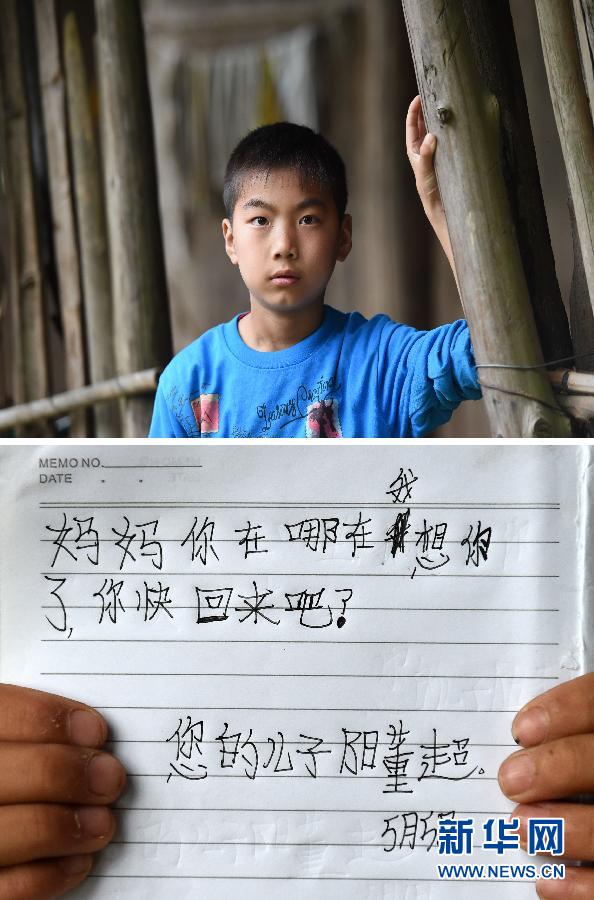 MEMO NO.
DATE . .
妈妈你在哪在我想你
了,你快回来吧?
您的儿子阳董超。
5月5号
新华网
WWW.NEWS.CN